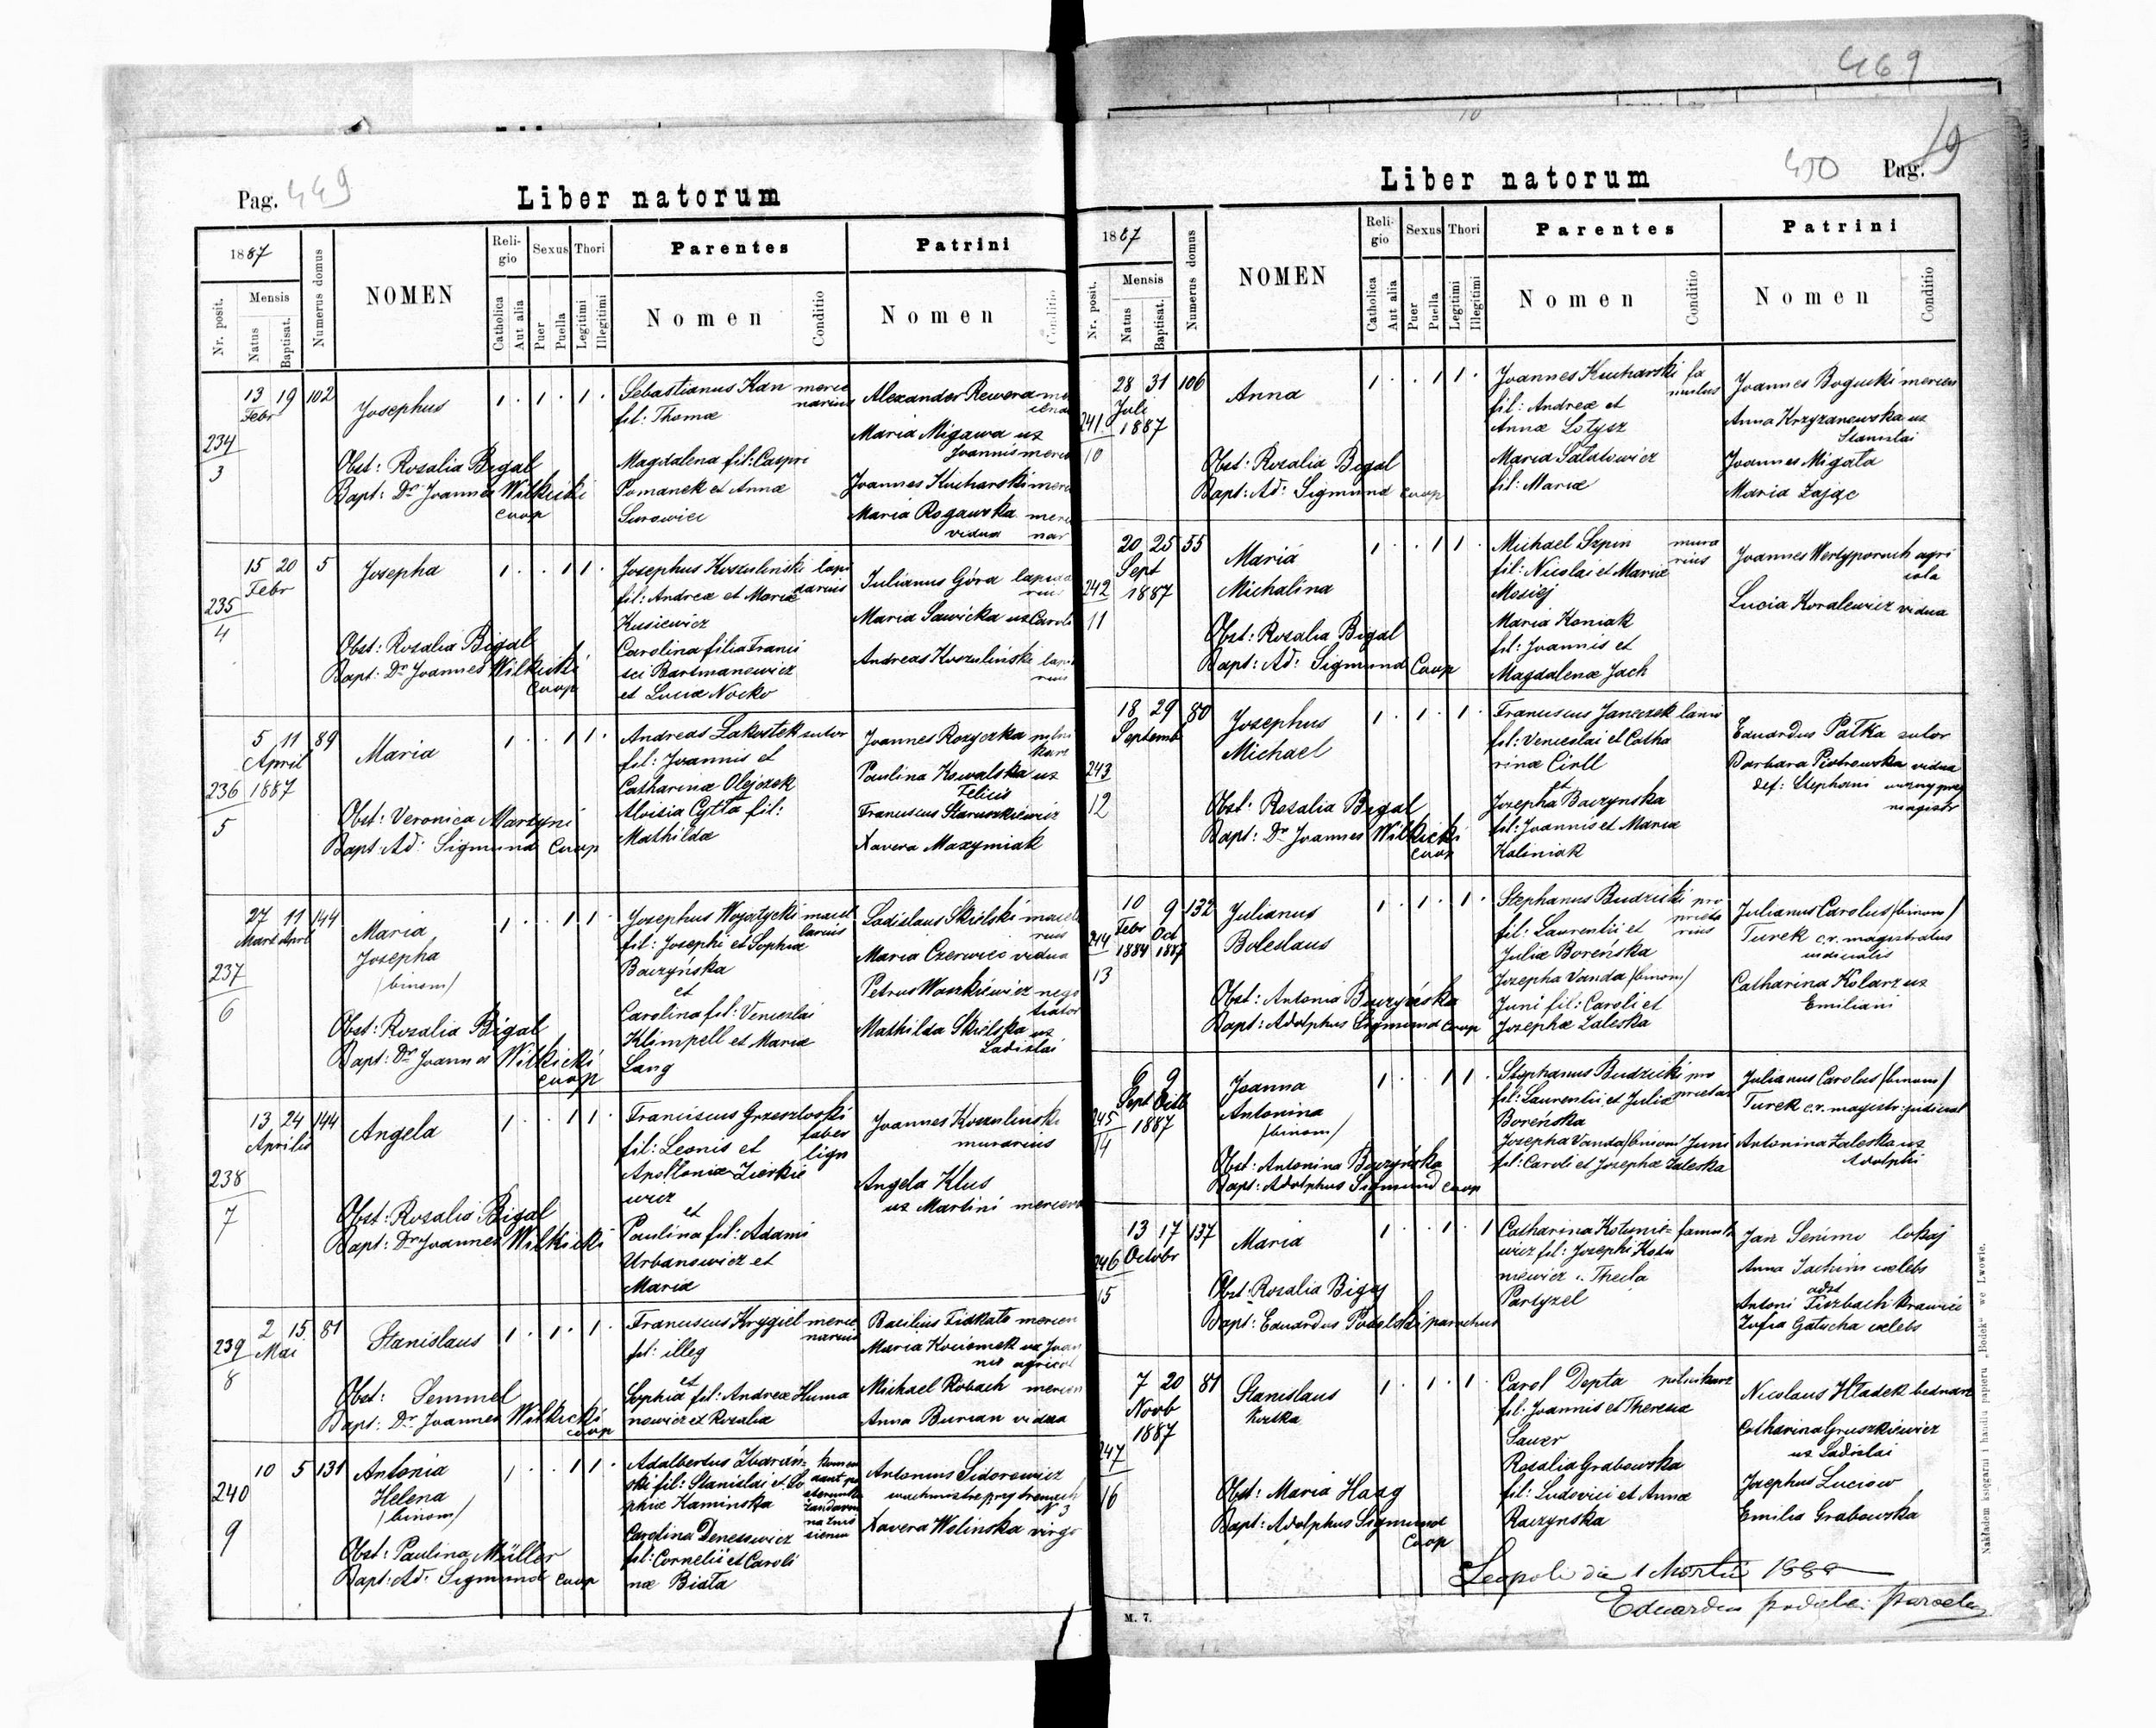 469
Pag. 449
Liber natorum
1887
Nr. posit.
Mensis
Natus
Baptisat.
Numerus domus
NOMEN
Religio
Catholica
Aut alia
Sexus
Puer
Puella
Thori
Legitimi
Illegitimi
Parentes
Nomen
Conditio
Patrini
Nomen
Conditio
234
3
13 19 102
Febr
Josephus
1 . 1 . 1 .
Obst: Rosalia Bigal
Bapt: Dr Joannes Wilkicki
coop
Sebastianus Kan merce
narius
fil: Thomæ
Magdalena fil: Caspri
Pomanek et Annæ
Surowiec
Alexander Rewera
Maria Migawa ux
Joannis
Joannes Kucharski
Maria Rogawska
vidua
235
4
15 20 5
Febr
Josepha
1 . . 1 1 .
Obst: Rosalia Bigal
Bapt: Dr Joannes Wilkicki
Coop
Josephus Koszulinski lapi
darius
fil: Andreæ et Mariæ
Kusiewicz
Carolina filia Franci
sci Bartmanowicz
et Luciæ Nocko
Julianus Góra
Maria Sawicka ux
Andreas Koszulinski
236
5
5 11 89
April
1887
Maria
1 . . 1 1 .
Obst: Veronica Marzyni
Bapt: Ad: Sigmund Coop
Andreas Lakostek sutor
fil: Joannis et
Catharinæ Olejozek
Aloisia Cytta fil:
Mathilda
Joannes Rozyczka
Paulina Kowalska ux
Felicis
Franciscus Staruszkiewicz
Xavera Maxymiak
237
6
27 11 144
Mart April
Maria
Josepha
/binom/
1 . . 1 1 .
Obst: Rosalia Bigal
Bapt: Dr Joannes Wilkicki
coop
Josephus Wojatycki macel
larius
fil: Josephi et Sophiæ
Baczyńska
et
Carolina fil: Venceslai
Klimpell et Mariæ
Lang
Ladislaus Skielski
Maria Czerwiec vidua
Petrus Waszkiewicz nego
tiator
Mathilda Skielska ux
Ladislai
238
7
13 24 144
Aprilis
Angela
1 . . 1 1 .
Obst: Rosalia Bigal
Bapt: Dr Joannes Wilkicki
Franciscus Grzeszlowski
faber
lign
fil: Leonis et
Apolloniæ Zierkie
wicz
et
Paulina fil: Adami
Urbanowicz et
Maria
Joannes Koszulinski
murarius
Angela Klus
ux Martini
239
8
2 15 81
Mai
Stanislaus
1 . 1 . 1 .
Obst: Semmel
Bapt: Dr Joannes Wilkicki
coop
Franciscus Krygiel merce
narius
fil: illeg
et
Sophia fil: Andreæ Huma
nowicz et Rosalia
Basilius Fidkato mercen
Maria Kociomek ux Joan
nis agricol
Michael Robach mercen
Anna Burian vidua
240
9
10 5 131
Antonia
Helena
/binom/
1 . . 1 1 .
Obst: Paulina Müller
Bapt: Ad: Sigmund coop
Adalbertus Zbarań-
ski fil: Stanislai et So
phiæ Kaminska
Carolina Denesiewicz
fil: Cornelii et Caroli
næ Biata
Antonius Sidorowicz
Xavera Wolinska virgo
Liber natorum
450 Pag. 19
1887
Nr. posit.
Mensis
Natus
Baptisat.
Numerus domus
NOMEN
Religio
Catholica
Aut alia
Sexus
Puer
Puella
Thori
Legitimi
Illegitimi
Parentes
Nomen
Conditio
Patrini
Nomen
Conditio
241
10
28 31 106
Juli
1887
Anna
1 . . 1 1 .
Obst: Rosalia Bigal
Bapt: Ad: Sigmund coop
Joannes Kucharski fa
mulus
fil: Andreæ et
Annæ Lotysz
Maria Satatowicz
fil: Mariæ
Joannes Bogucki mercen
Anna Krzyzanowska ux
Stanislai
Joannes Migata
Maria Zając
242
11
20 25 55
Sept
1887
Maria
Michalina
1 . . 1 1 .
Obst: Rosalia Bigal
Bapt: Ad: Sigmund Coop
Michael Szpin mura
rius
fil: Nicolai et Mariæ
Mosiej
Maria Koniak
fil: Joannis et
Magdalenæ Jach
Joannes Wertyporoch agri
cola
Lucia Koralewicz vidua
243
12
18 29 80
Septemb
Josephus
Michael
1 . 1 . 1 .
Obst: Rosalia Bigal
Bapt: Dr Joannes Wilkicki
coop
Franciscus Janeczek lanio
fil: Venceslai et Catha
rinæ Cirll
et
Josepha Baczynska
fil: Joannis et Mariæ
Kaliniak
Eduardus Patka sutor
Barbara Piotrowska vidua
def: Stephani woznyprzy
magistr
244
13
10 9 132
Febr Oct
1884 1887
Julianus
Boleslaus
1 . 1 . 1 .
Obst: Antonia Baczyńska
Bapt: Adolphus Sigmund Coop
Stephanus Budzicki pro
prieta
rius
fil: Laurentii et
Juliæ Boreńska
Josepha Vanda /binom/
Juni fil: Caroli et
Josephæ Zaleska
Julianus Carolus /binom/
Turek c.r. magistratus
judicialis
Catharina Kolarz ux
Emiliani
245
14
9
Sept Octb
1887
Joanna
Antonina
/binom/
1 . . 1 1 .
Obst: Antonina Baczyńska
Bapt: Adolphus Sigmund coop
Stephanus Budzicki pro
prietar
fil: Laurentii et Juliæ
Boreńska
Josepha Vanda /binom/ Juni
fil: Caroli et Josepha Zaleska
Julianus Carolus /binom/
Turek c.r. magistr: judicial
Antonina Zaleska ux
Adolphi
246
15
13 17 137
Octobr
Maria
1 . . 1 . 1
Obst: Rosalia Bigaj
Bapt: Eduardus Podolski parochus
Catharina Kotunie- famula
wicz fil: Josephi Kotu
niewicz . Thecla
Partyzel
Jan Senimo lokaj
Anna Jachim cælebs
adst
Antoni Fiszbach krawiec
Zofia Gatucha cælebs
247
16
7 20 81
Novb
1887
Stanislaus
Kostka
1 . 1 . 1 .
Obst: Maria Haag
Bapt: Adolphus Sigmund
Coop
Carol Depta
fil: Joannis et Theresia
Sauer
Rosalia Grabowska
fil: Ludovici et Annæ
Raczynska
Nicolaus Hładek bednarz
Catharina Gruszkiewicz
ux Ladislai
Josephus Luciow
Emilia Grabowska
Leopoli die 1 Martii 1888
M. 7.
Nakładem księgarni i handlu papieru „Bodek" we Lwowie.